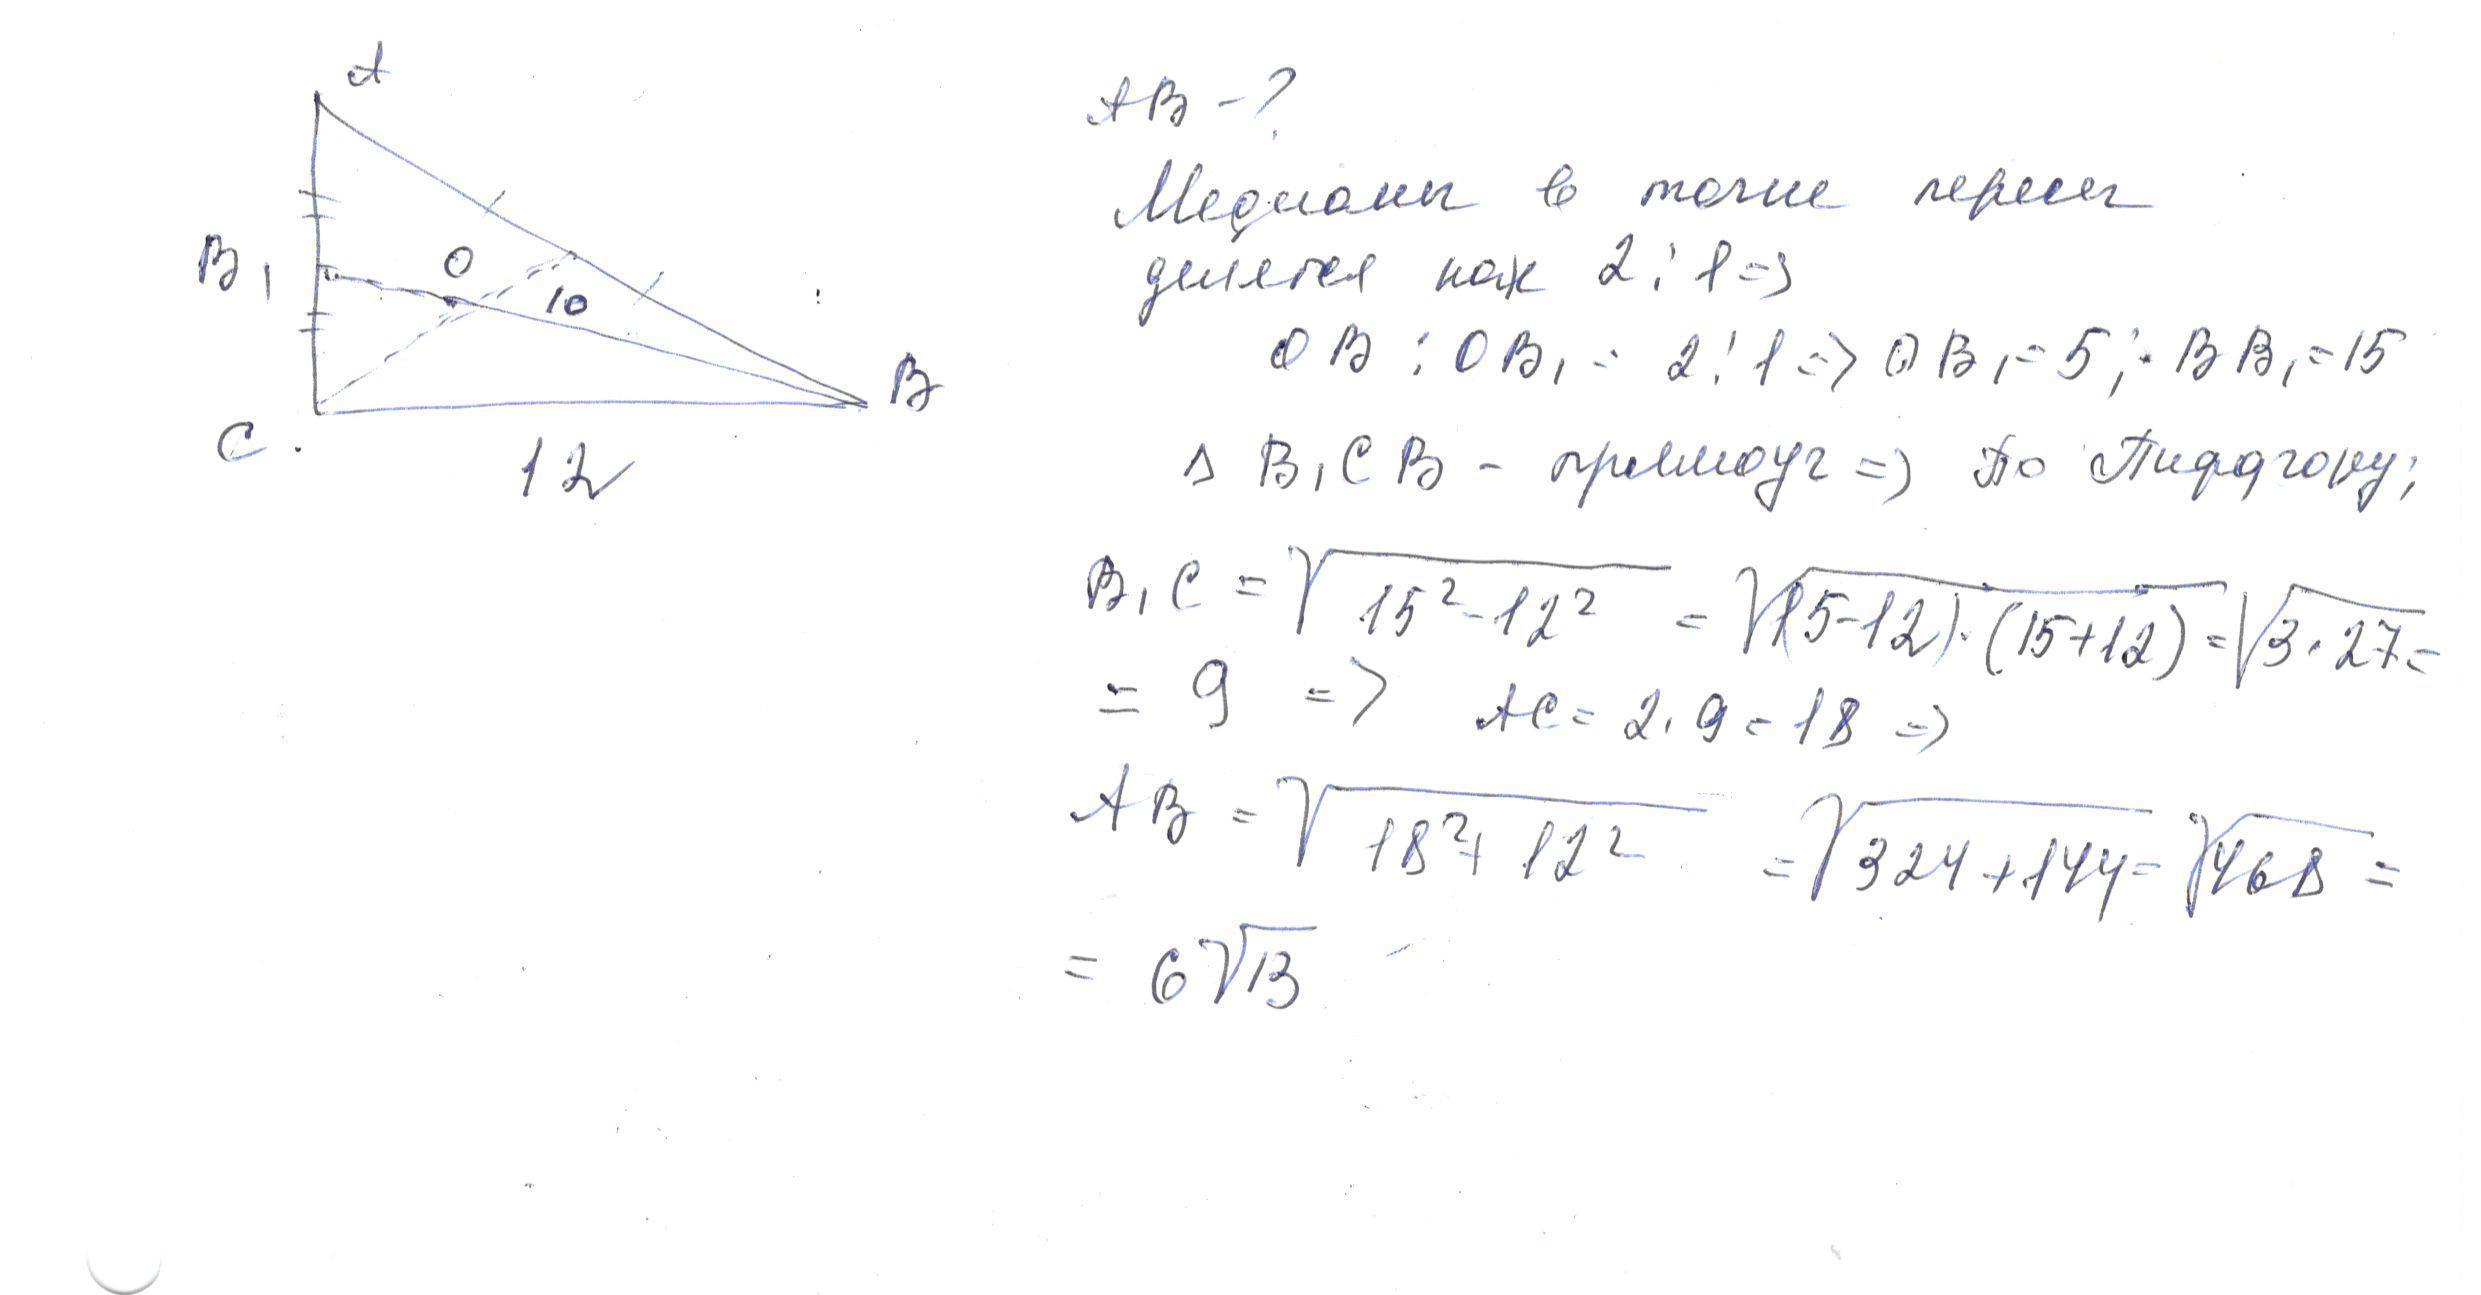 A
B₁
O
10
B
C
12
AB - ?
Медианы в точке пересеч
делятся как 2:1 =>
OB : OB₁ = 2:1 => OB₁ = 5; BB₁ = 15
Δ B₁CB - прямоуг => По Пифагору;
B₁C = √(15² - 12²) = √((15-12)·(15+12)) = √(3·27) =
= 9 => AC = 2·9 = 18 =>
AB = √(18² + 12²) = √(324+144) = √468 =
= 6√13